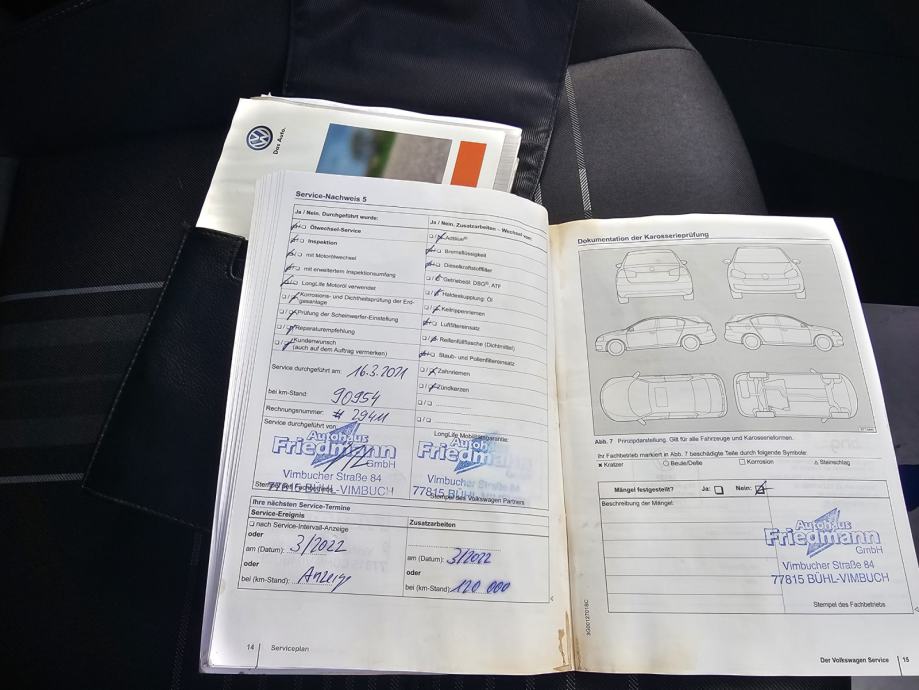 Das Auto.
Service-Nachweis 5
Ja / Nein. Durchgeführt wurde:
Ölwechsel-Service
Inspektion
mit Motorölwechsel
mit erweitertem Inspektionsumfang
LongLife Motoröl verwendet
Korrosions- und Dichtheitsprüfung der Erd-
gasanlage
Prüfung der Scheinwerfer-Einstellung
Reparaturempfehlung
Kundenwunsch
(auch auf dem Auftrag vermerken)
Service durchgeführt am: 16.3.2021
bei km-Stand: 90954
Rechnungsnummer: # 29411
Service durchgeführt von
Autohaus
Friedmann
GmbH
Vimbucher Straße 84
77815 BÜHL-VIMBUCH
Stempel des Fachbetriebs
Ja / Nein. Zusatzarbeiten – Wechsel von:
AdBlue®
Bremsflüssigkeit
Dieselkraftstofffilter
Getriebeöl: DSG®, ATF
Haldexkupplung: Öl
Keilrippenriemen
Luftfiltereinsatz
Reifenfüllflasche (Dichtmittel)
Staub- und Pollenfiltereinsatz
Zahnriemen
Zündkerzen
LongLife Mobilitätsgarantie:
Autohaus
Friedmann
Vimbucher Straße 84
77815 BÜHL
Stempel des Volkswagen Partners
Ihre nächsten Service-Termine
Service-Ereignis
nach Service-Intervall-Anzeige
oder
am (Datum): 3/2022
oder
bei (km-Stand): Anzeige
Zusatzarbeiten
am (Datum): 3/2022
oder
bei (km-Stand): 120 000
14 Serviceplan
Dokumentation der Karosserieprüfung
Abb. 7 Prinzipdarstellung. Gilt für alle Fahrzeuge und Karosserieformen.
Ihr Fachbetrieb markiert in Abb. 7 beschädigte Teile durch folgende Symbole:
Kratzer Beule/Delle Korrosion Steinschlag
Mängel festgestellt? Ja: Nein:
Beschreibung der Mängel:
Autohaus
Friedmann
GmbH
Vimbucher Straße 84
77815 BÜHL-VIMBUCH
Stempel des Fachbetriebs
Der Volkswagen Service 15